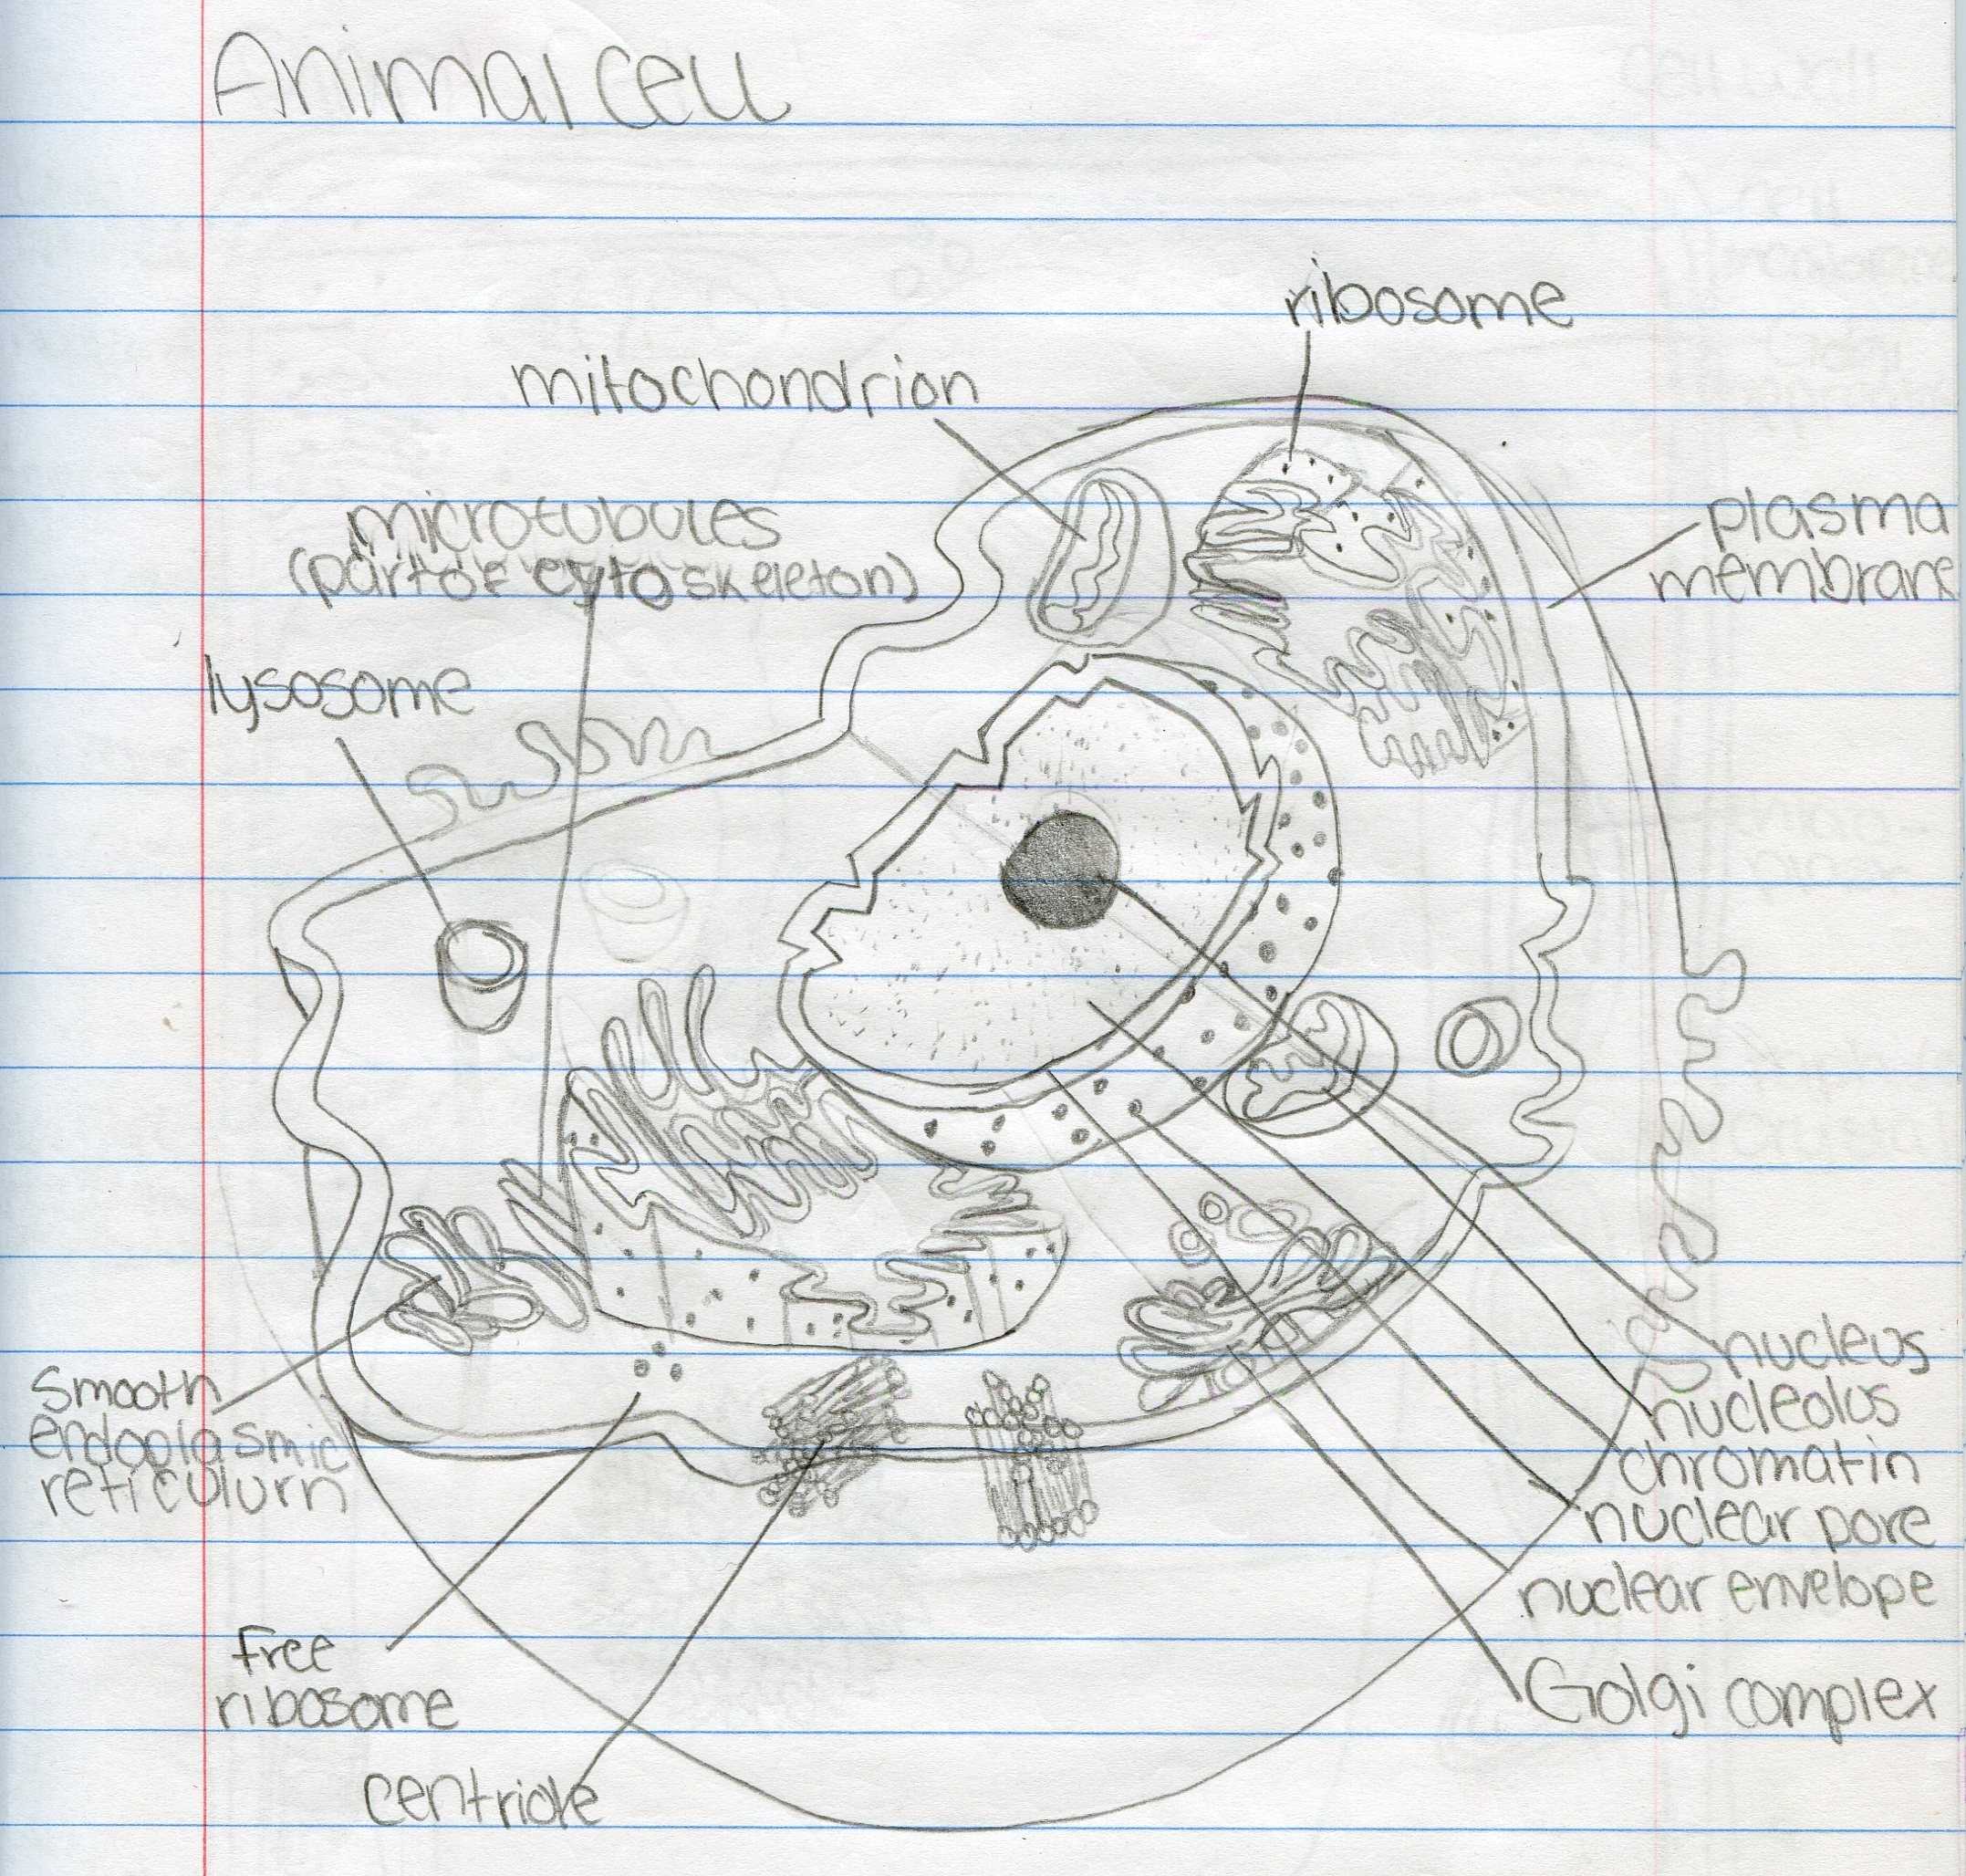 Animal cell
ribosome
mitochondrion
microtubules
(part of cytoskeleton)
plasma
membrane
lysosome
smooth
endoplasmic
reticulum
nucleus
nucleolus
chromatin
nuclear pore
nuclear envelope
Golgi complex
free
ribosome
centriole